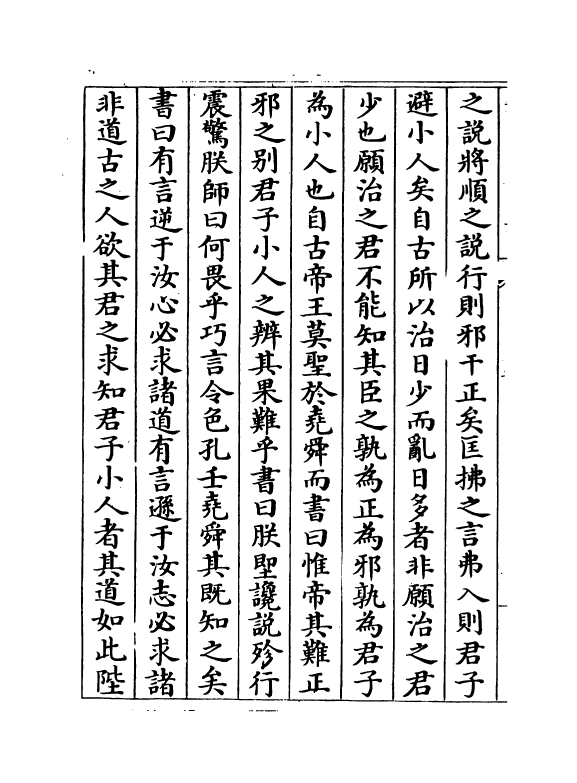 之說將順之說行則邪干正矣匡拂之言弗入則君子
避小人矣自古所以治日少而亂日多者非願治之君
少也願治之君不能知其臣之孰為正為邪孰為君子
為小人也自古帝王莫聖於堯舜而書曰惟帝其難正
邪之别君子小人之辨其果難乎書曰朕堲讒說殄行
震驚朕師曰何畏乎巧言令色孔壬堯舜其既知之矣
書曰有言逆于汝心必求諸道有言遜于汝志必求諸
非道古之人欲其君之求知君子小人者其道如此陛